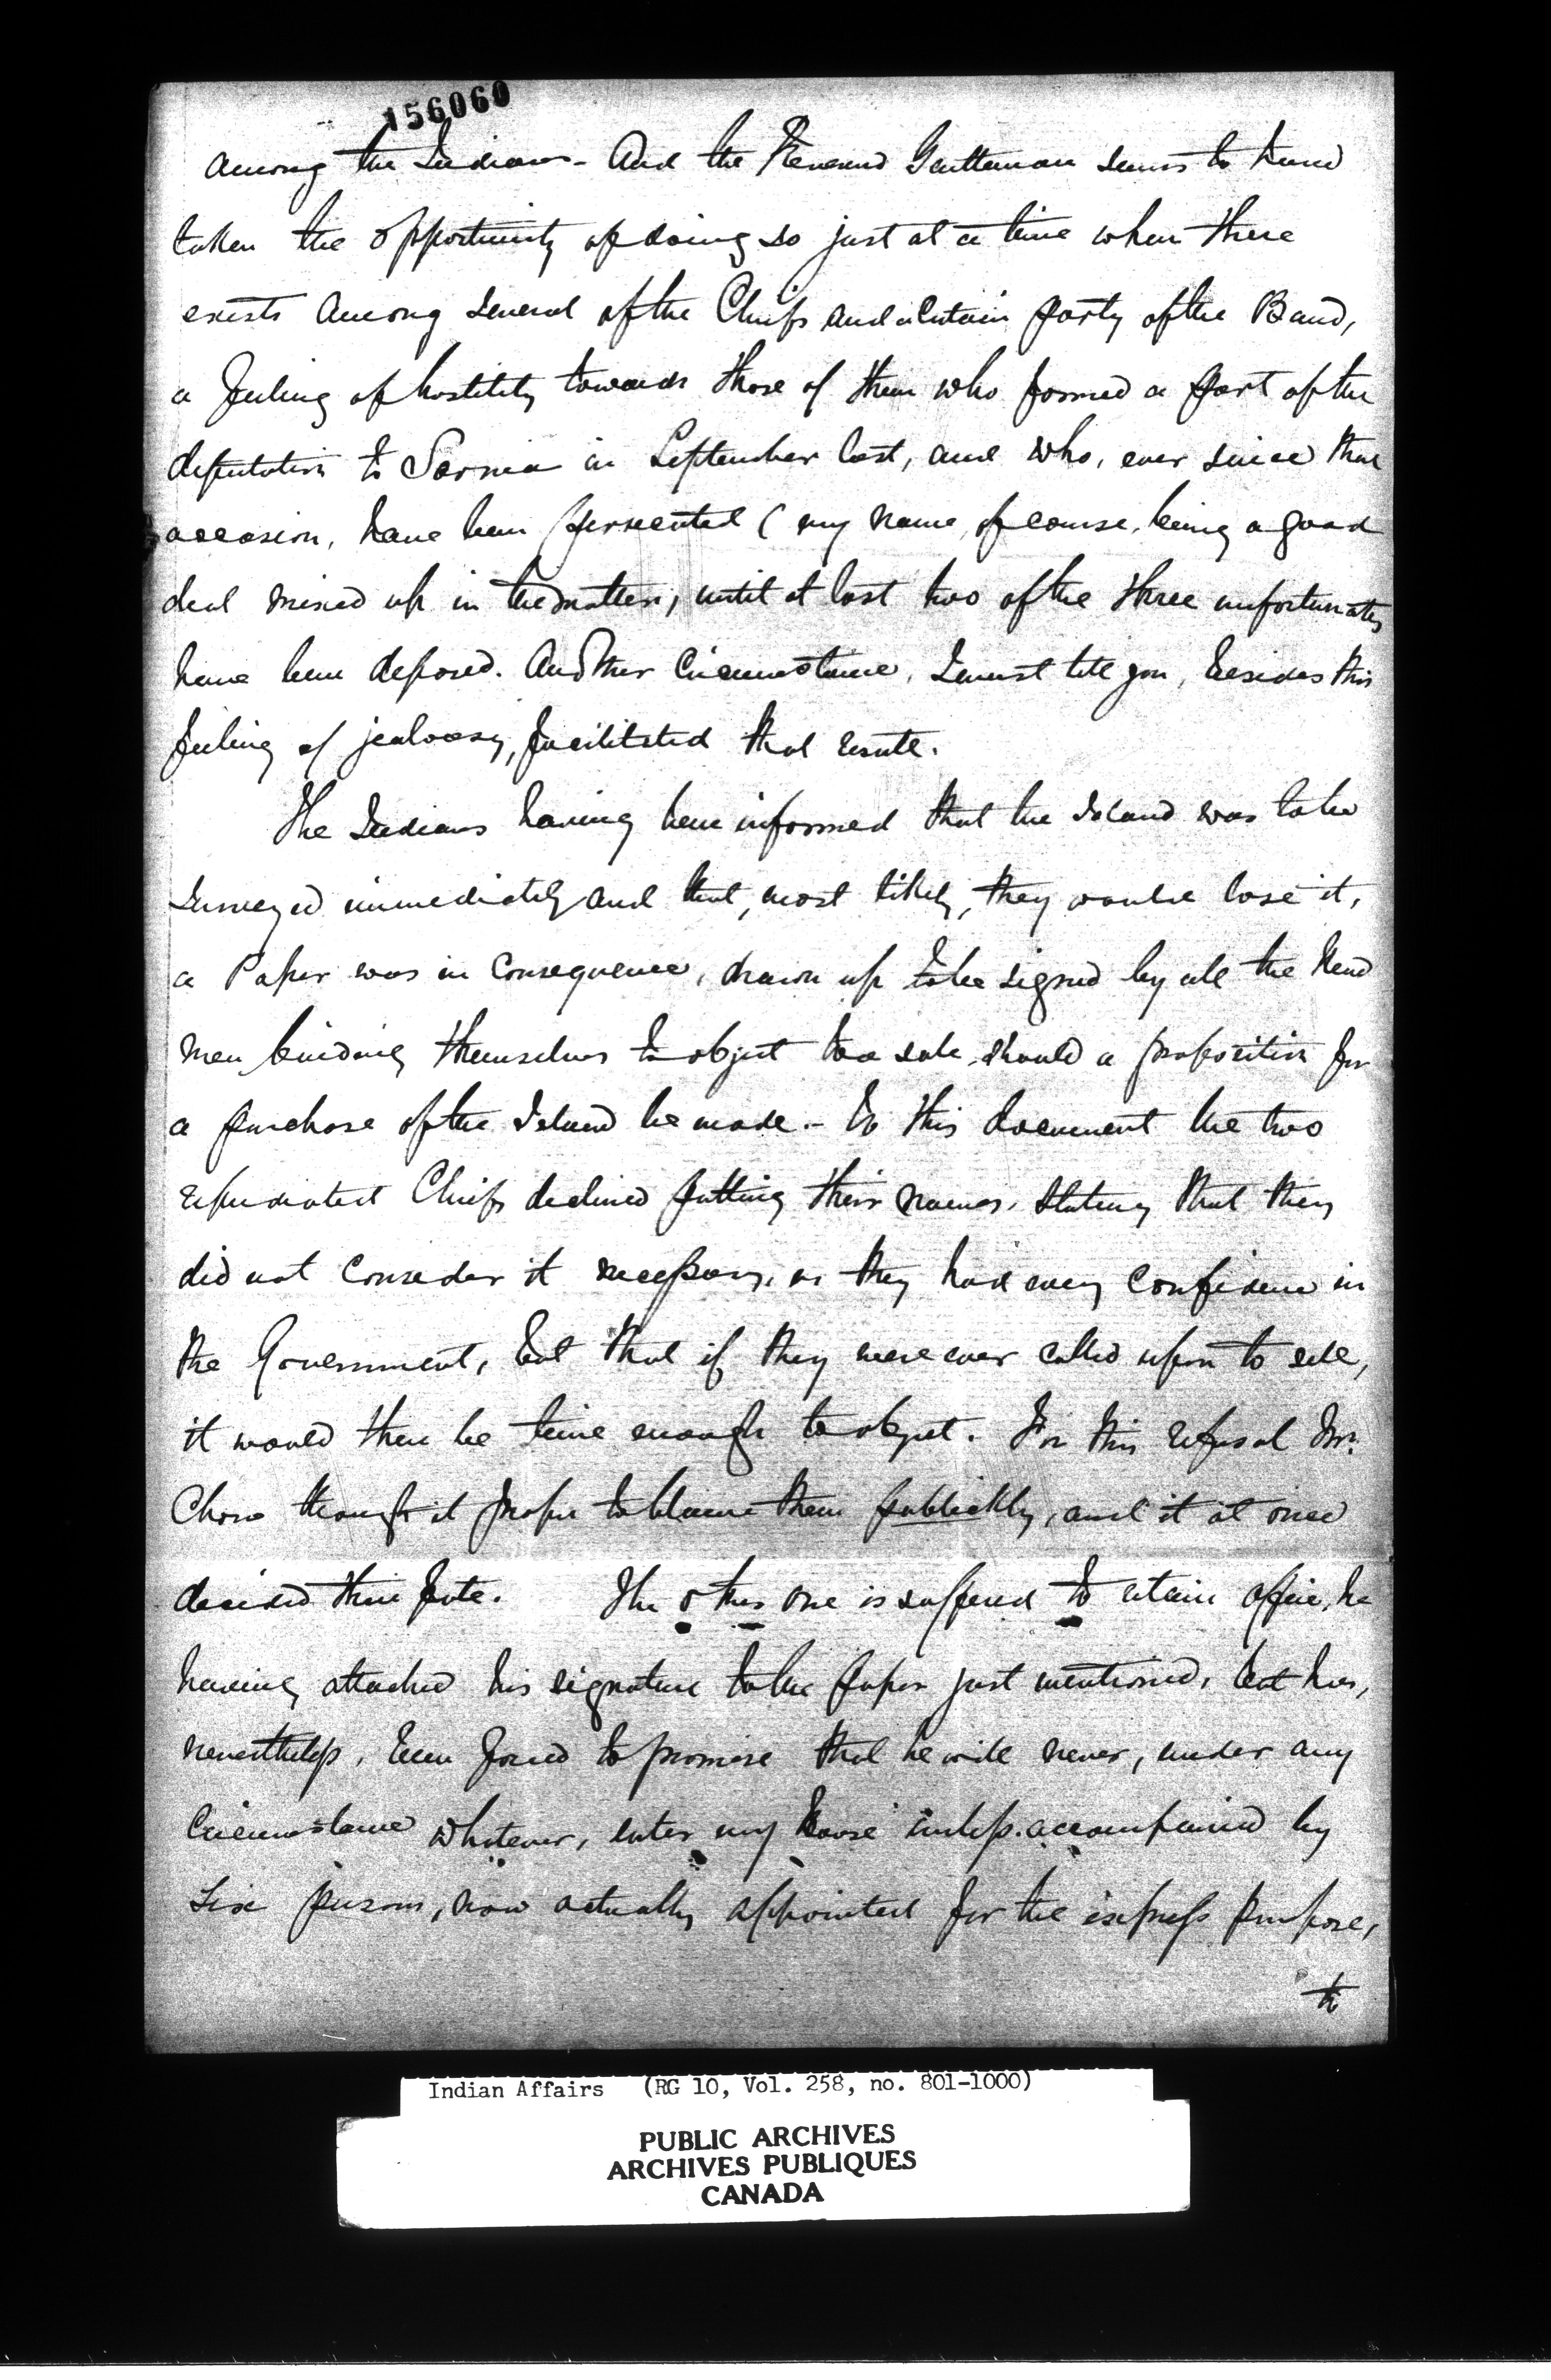 156060
among the Indians - And the Reverend Gentleman seems to have
taken the opportunity of doing so just at a time when there
exists among several of the Chiefs and a Certain party of the Band,
a feeling of hostility towards those of them who formed a part of the
deputation to Sarnia in September last, and who, ever since that
occasion, have been persecuted ( my name, of course, being a good
deal mixed up in the matter, until at last two of the three unfortunates
have been deposed. Another Circumstance, I must tell you, besides this
feeling of jealousy, facilitated that result.
The Indians having been informed that the Island was to be
Surveyed immediately and that, most likely, they would lose it,
a Paper was in Consequence, drawn up to be signed by all the Head
men binding themselves to object to a sale, should a proposition for
a purchase of the Island be made. - To this document the two
repudiated Chiefs declined putting their names, stating that they
did not Consider it necessary, as they had every Confidence in
the Government, but that if they were ever called upon to sell,
it would then be time enough to object. For this refusal Mr.
Chase thought it proper to blame them publickly, and it at once
decided their fate. The other one is suffered to retain office, he
having attached his signature to the paper just mentioned, but has,
nevertheless, been forced to promise that he will never, under any
Circumstance whatever, enter my house unless accompanied by
six persons, now actually appointed for the express purpose,
to
Indian Affairs (RG 10, Vol. 258, no. 801-1000)
PUBLIC ARCHIVES
ARCHIVES PUBLIQUES
CANADA